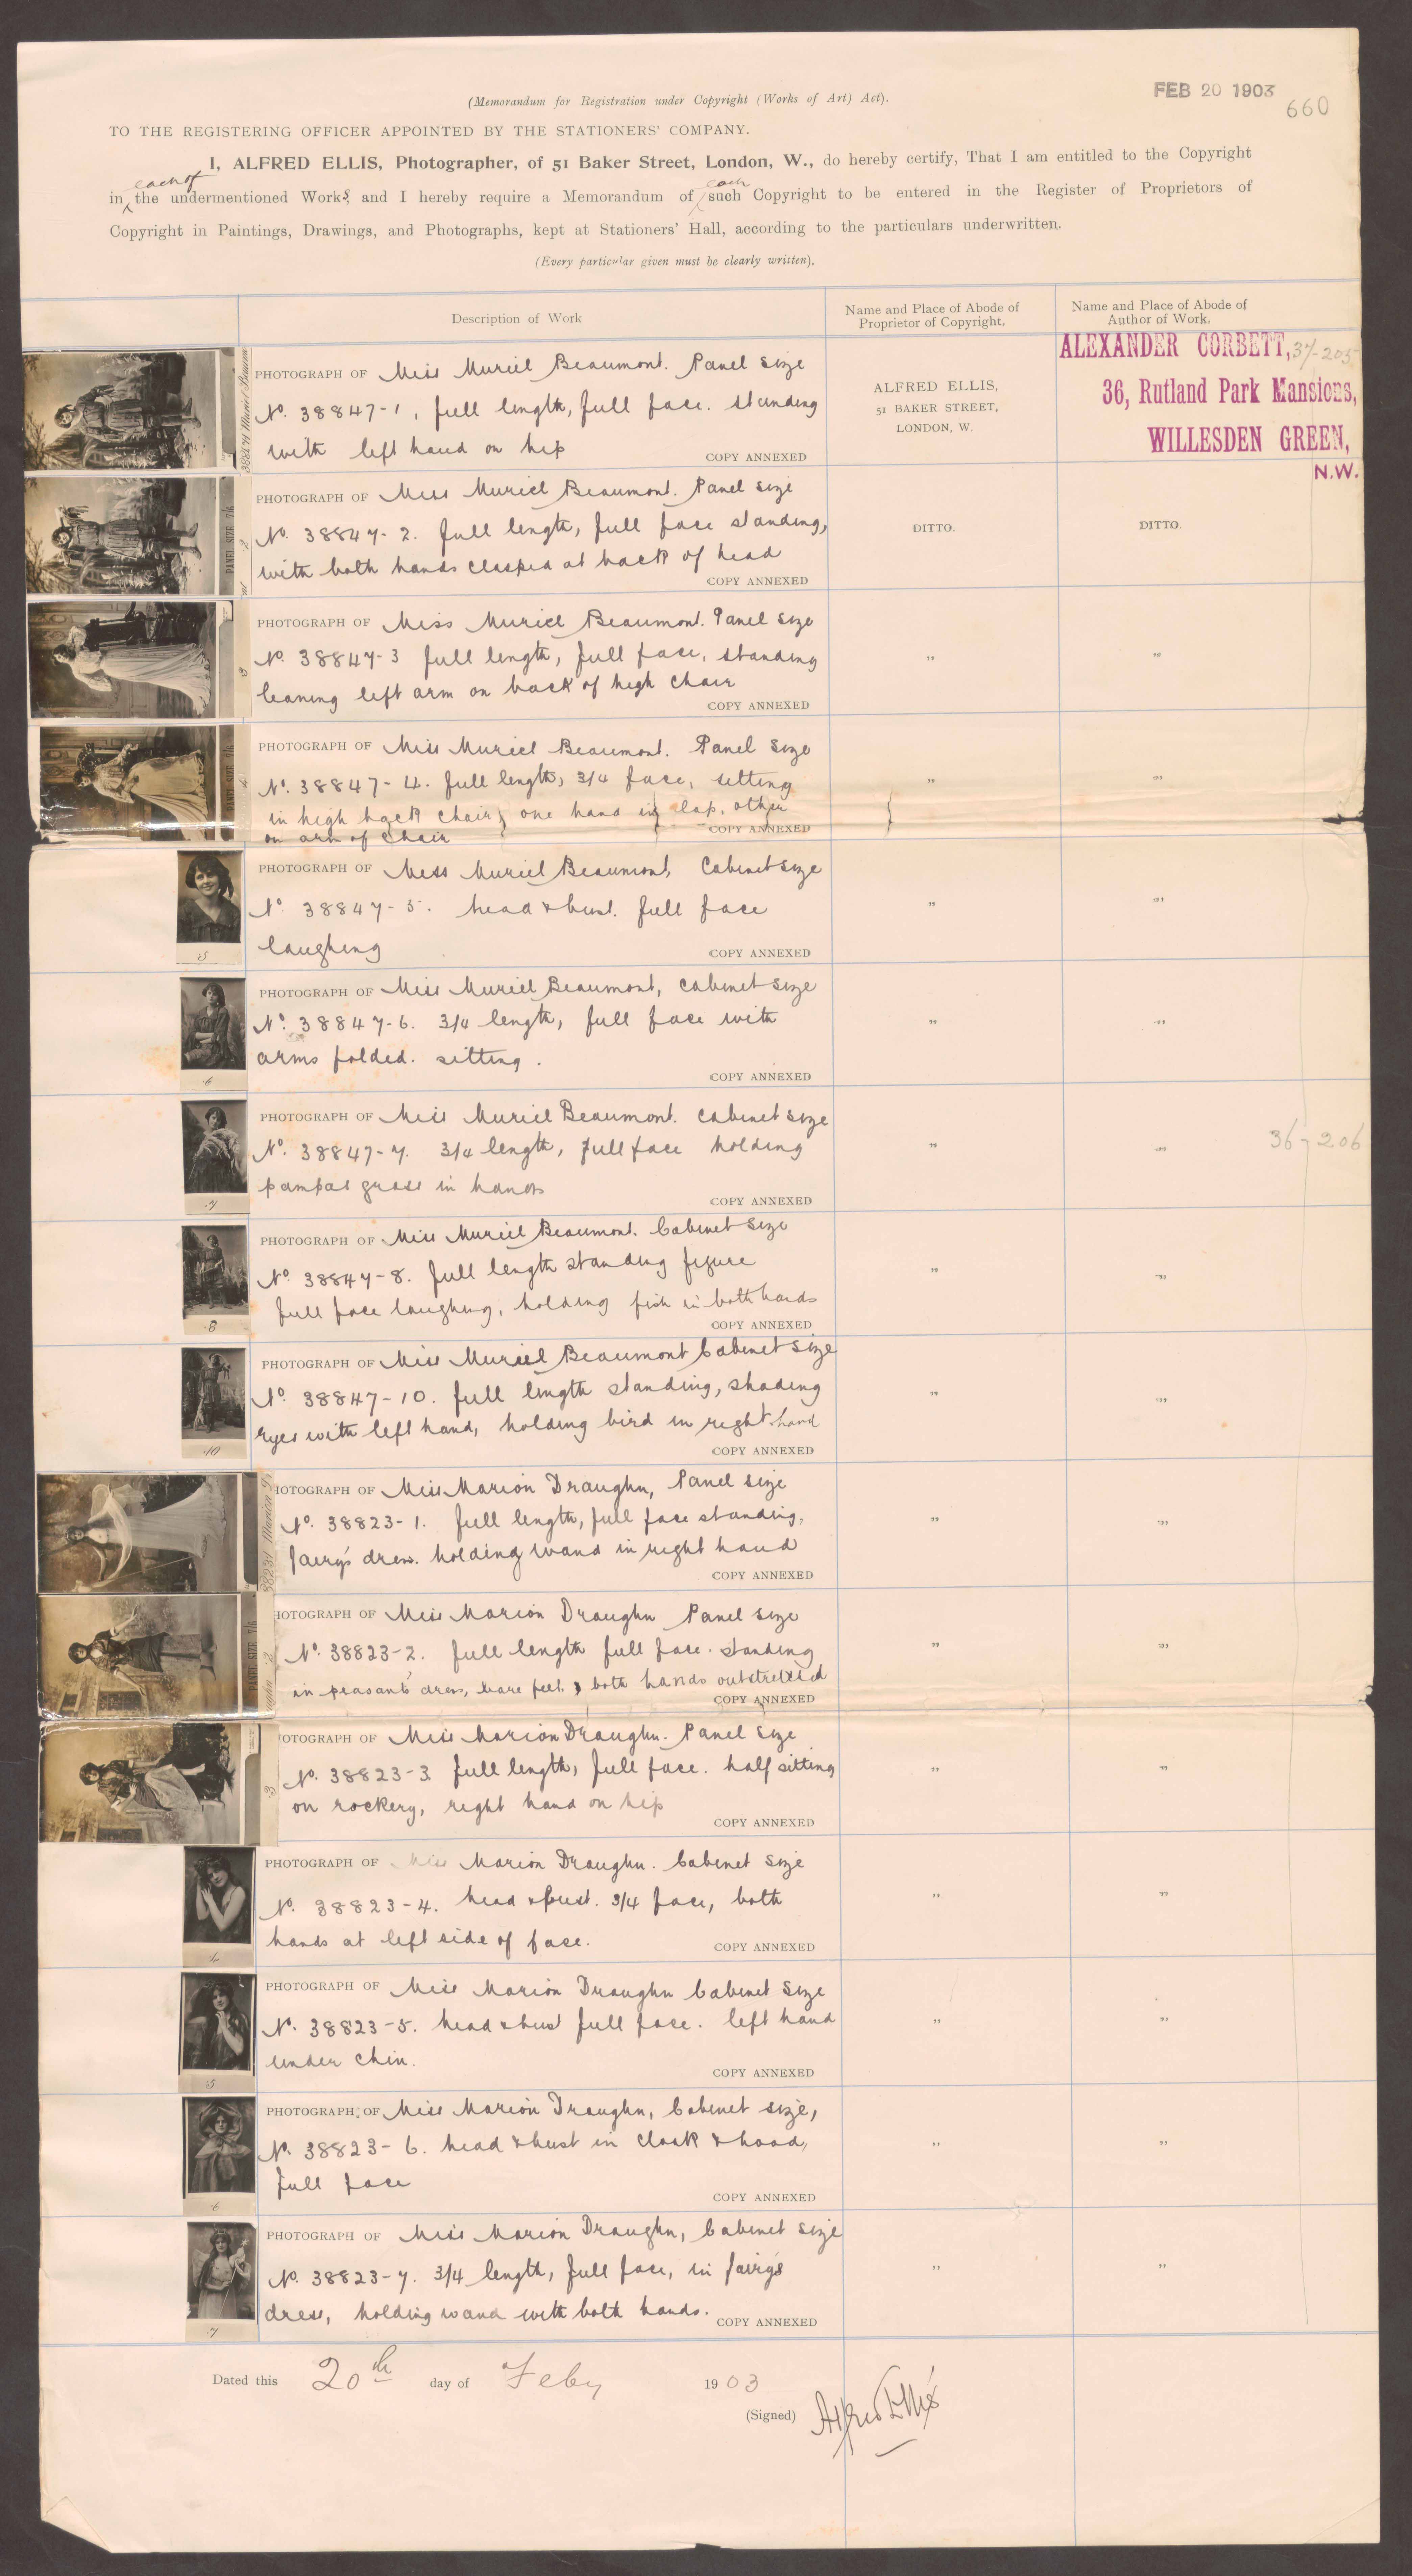 FEB 20 1903
660
(Memorandum for Registration under Copyright (Works of Art) Act).
TO THE REGISTERING OFFICER APPOINTED BY THE STATIONERS' COMPANY.
I, ALFRED ELLIS, Photographer, of 51 Baker Street, London, W., do hereby certify, That I am entitled to the Copyright
in each of the undermentioned Works and I hereby require a Memorandum of each such Copyright to be entered in the Register of Proprietors of
Copyright in Paintings, Drawings, and Photographs, kept at Stationers' Hall, according to the particulars underwritten.
(Every particular given must be clearly written).
Description of Work
Name and Place of Abode of
Proprietor of Copyright.
Name and Place of Abode of
Author of Work.
PHOTOGRAPH OF Miss Muriel Beaumont. Panel size
No. 38847-1, full length, full face. standing
with left hand on hip
COPY ANNEXED
ALFRED ELLIS,
51 BAKER STREET,
LONDON, W.
ALEXANDER CORBETT,
36, Rutland Park Mansions,
WILLESDEN GREEN,
N.W.
PANEL SIZE 2
PHOTOGRAPH OF Miss Muriel Beaumont. Panel size
No. 38847-2. full length, full face standing,
with both hands clasped at back of head
COPY ANNEXED
DITTO.
DITTO.
3
PHOTOGRAPH OF Miss Muriel Beaumont. Panel size
No. 38847-3 full length, full face, standing
leaning left arm on back of high chair
COPY ANNEXED
"
"
PANEL SIZE 4
PHOTOGRAPH OF Miss Muriel Beaumont. Panel size
No. 38847-4. full length, 3/4 face, sitting
in high back chair, one hand in lap, other
on arm of chair
COPY ANNEXED
"
"
5
PHOTOGRAPH OF Miss Muriel Beaumont, Cabinet size
No. 38847-5. head & bust. full face
laughing
COPY ANNEXED
"
"
6
PHOTOGRAPH OF Miss Muriel Beaumont, cabinet size
No. 38847-6. 3/4 length, full face with
arms folded. sitting.
COPY ANNEXED
"
"
7
PHOTOGRAPH OF Miss Muriel Beaumont. cabinet size
No. 38847-7. 3/4 length, full face holding
pampas grass in hands
COPY ANNEXED
"
"
36-206
8
PHOTOGRAPH OF Miss Muriel Beaumont. Cabinet size
No. 38847-8. full length standing figure
full face laughing, holding fish in both hands
COPY ANNEXED
"
"
10
PHOTOGRAPH OF Miss Muriel Beaumont Cabinet size
No. 38847-10. full length standing, shading
eyes with left hand, holding bird in right hand
COPY ANNEXED
"
"
PHOTOGRAPH OF Miss Marion Draughn, Panel size
No. 38823-1. full length, full face standing,
fairy's dress. holding wand in right hand
COPY ANNEXED
"
"
PANEL SIZE 2
PHOTOGRAPH OF Miss Marion Draughn Panel size
No. 38823-2. full length full face. standing
in peasants dress, bare feet. & both hands outstretched
COPY ANNEXED
"
"
3
PHOTOGRAPH OF Miss Marion Draughn. Panel size
No. 38823-3 full length, full face. half sitting
on rockery, right hand on hip
COPY ANNEXED
"
"
4
PHOTOGRAPH OF Miss Marion Draughn. Cabinet size
No. 38823-4. head & bust. 3/4 face, both
hands at left side of face.
COPY ANNEXED
"
"
5
PHOTOGRAPH OF Miss Marion Draughn Cabinet size
No. 38823-5. head & bust full face. left hand
under chin.
COPY ANNEXED
"
"
6
PHOTOGRAPH OF Miss Marion Draughn, Cabinet size,
No. 38823-6. head & bust in cloak & hood,
full face
COPY ANNEXED
"
"
7
PHOTOGRAPH OF Miss Marion Draughn, Cabinet size
No. 38823-7. 3/4 length, full face, in fairy's
dress, holding wand with both hands.
COPY ANNEXED
"
"
Dated this 20th day of Feby 1903
(Signed) Alfred Ellis